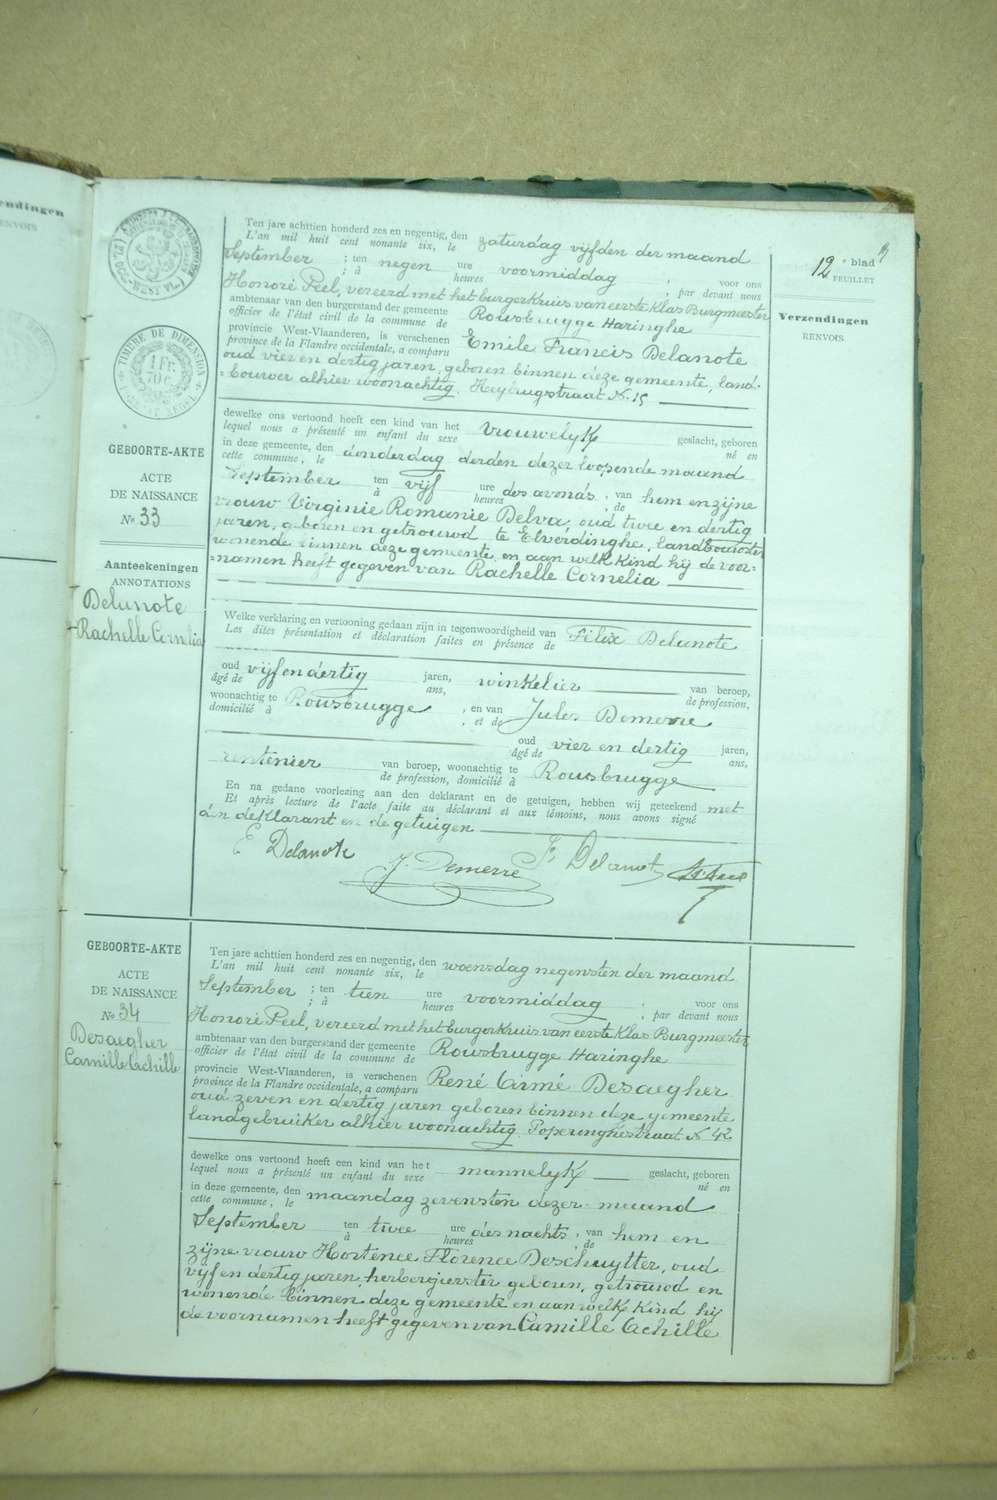 endingen
RENVOIS
12e blad
FEUILLET
Verzendingen
RENVOIS
TIMBRE DE DIMENSION
1 FR.
GEBOORTE-AKTE
ACTE
DE NAISSANCE
No 33
Aanteekeningen
ANNOTATIONS
Delanote
Rachelle Cornelia
Ten jare achttien honderd zes en negentig, den zaturdag vijfden der maand
L'an mil huit cent nonante six, le
September ; ten negen ure voormiddag ; voor ons
; à heures ; par devant nous
Honoré Peel, vereerd met het burgerkruis van eerste klas Burgmeester
ambtenaar van den burgerstand der gemeente Rousbrugge Haringhe
officier de l'état civil de la commune de
provincie West-Vlaanderen, is verschenen Emile Francis Delanote
province de la Flandre occidentale, a comparu
oud vier en dertig jaren, geboren binnen deze gemeente, land=
=bouwer alhier woonachtig. Heybrugstraat N. 15
dewelke ons vertoond heeft een kind van het vrouwelyk geslacht, geboren
lequel nous a présenté un enfant du sexe né en
in deze gemeente, den donderdag derden dezer loopende maand
cette commune, le
September ten vijf ure des avonds, van hem en zijne
à heures , de
vrouw Virginie Romanie Delva, oud twee en dertig
jaren, geboren en getrouwd te Elverdinghe, landbouwster
wonende binnen deze gemeente, en aan welk kind hij de voor=
=namen heeft gegeven van Rachelle Cornelia
Welke verklaring en vertooning gedaan zijn in tegenwoordigheid van Félix Delanote
Les dites présentation et déclaration faites en présence de
oud vijf en dertig jaren, winkelier van beroep,
âgé de ans, de profession,
woonachtig te Rousbrugge , en van Jules Demerre
domicilié à , et de
oud vier en dertig jaren,
âgé de ans,
rentenier van beroep, woonachtig te Rousbrugge
de profession, domicilié à
En na gedane voorlezing aan den deklarant en de getuigen, hebben wij geteekend met
Et après lecture de l'acte faite au déclarant et aux témoins, nous avons signé
den deklarant en de getuigen
E Delanote J. Demerre F. Delanote
GEBOORTE-AKTE
ACTE
DE NAISSANCE
No 34
Desaegher
Camille Achille
Ten jare achttien honderd zes en negentig, den woensdag negensten der maand
L'an mil huit cent nonante six, le
September ; ten tien ure voormiddag ; voor ons
; à heures ; par devant nous
Honoré Peel, vereerd met het burgerkruis van eerste klas Burgmeester
ambtenaar van den burgerstand der gemeente Rousbrugge Haringhe
officier de l'état civil de la commune de
provincie West-Vlaanderen, is verschenen René Aimé Desaegher
province de la Flandre occidentale, a comparu
oud zeven en dertig jaren geboren binnen deze gemeente
landgebruiker alhier woonachtig. Poperinghestraat N 42
dewelke ons vertoond heeft een kind van het mannelyk geslacht, geboren
lequel nous a présenté un enfant du sexe né en
in deze gemeente, den maandag zevensten dezer maand
cette commune, le
September ten twee ure des nachts, van hem en
à heures , de
zijne vrouw Hortence Florence Deschuytter, oud
vijf en dertig jaren, herbergierster geboren, getrouwd en
wonende binnen deze gemeente en aan welk kind hij
de voornamen heeft gegeven van Camille Achille